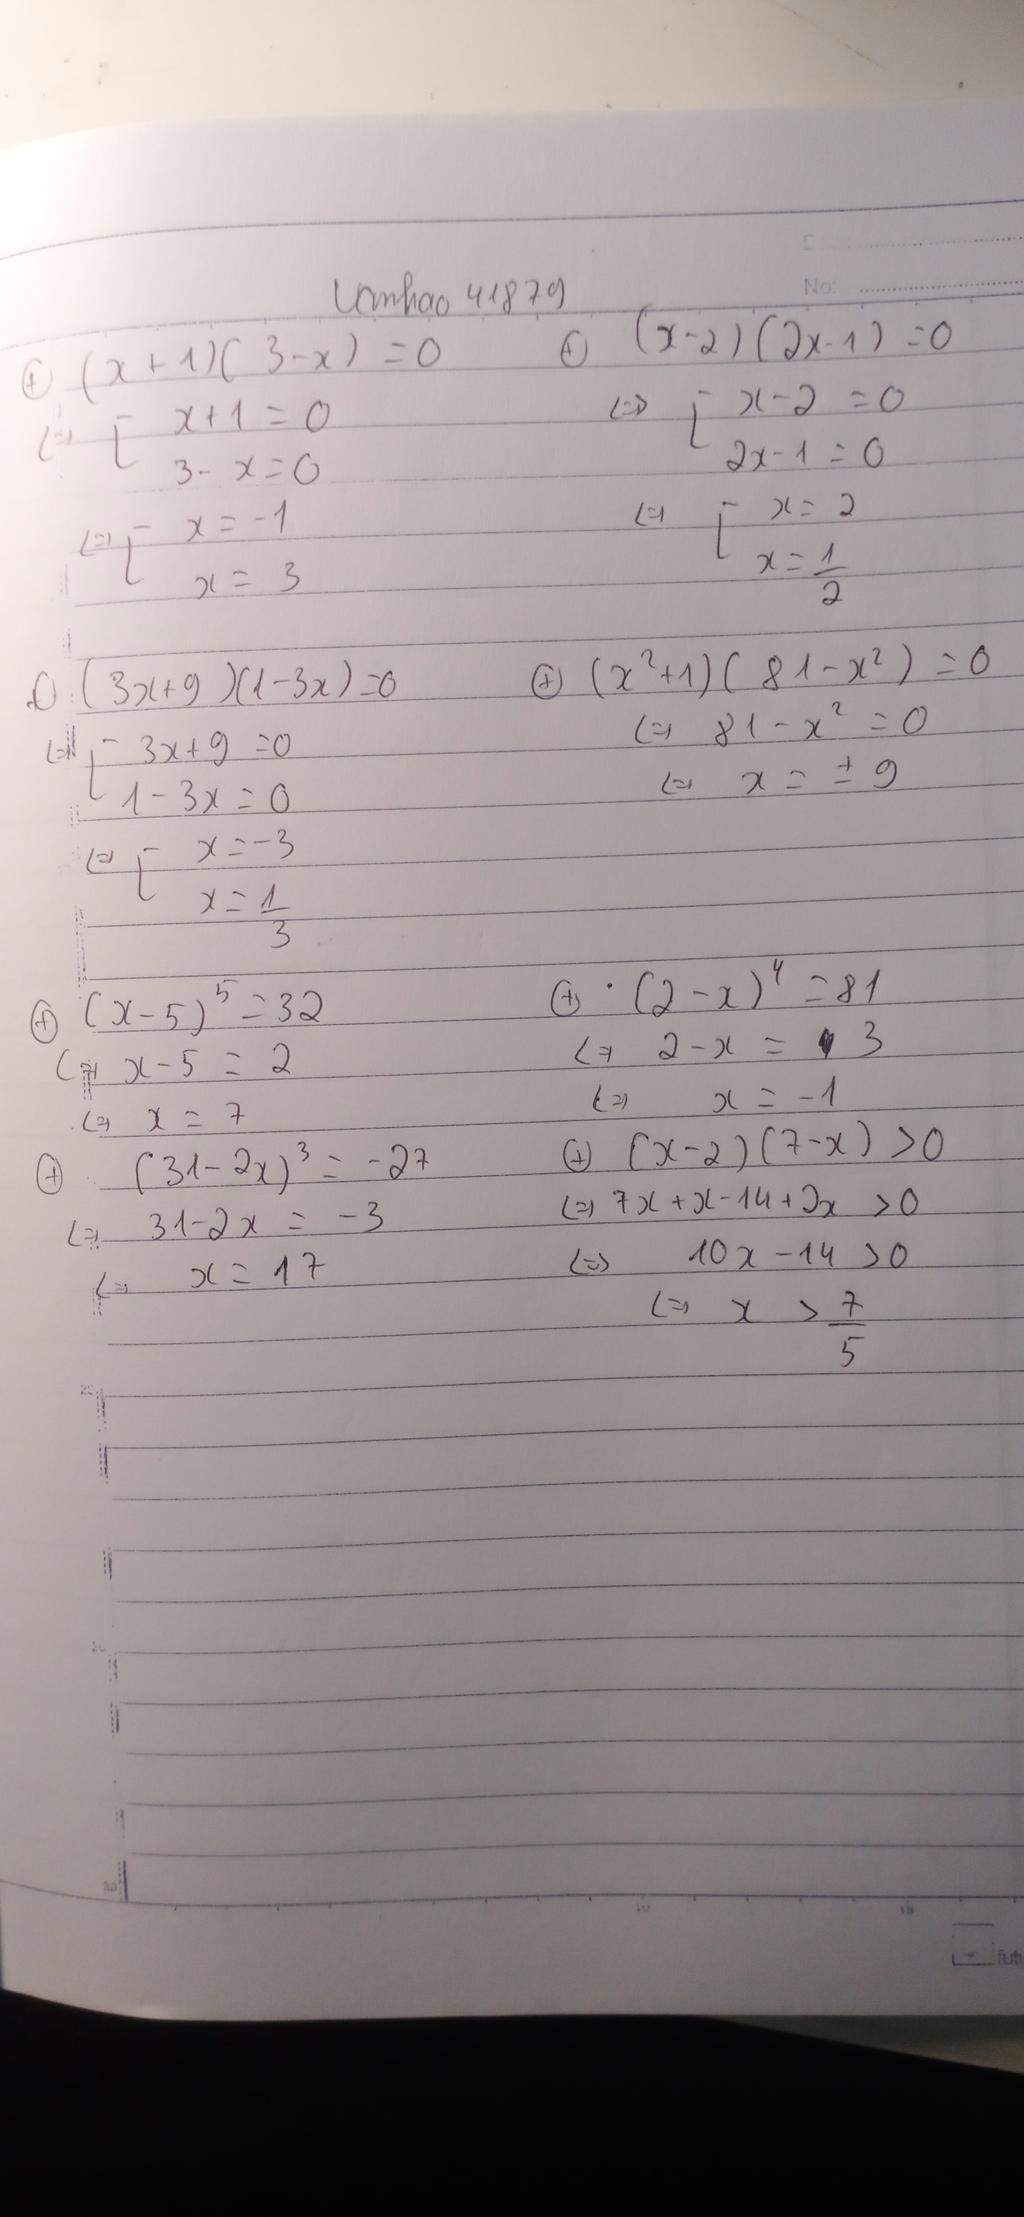 No:
(x+1)(3-x)=0
<=> [ x+1=0
3-x=0
<=> [ x=-1
x=3
(x-2)(2x-1)=0
<=> [ x-2=0
2x-1=0
<=> [ x=2
x=1/2
(3x+9)(1-3x)=0
<=> [ 3x+9=0
1-3x=0
<=> [ x=-3
x=1/3
⊕ (x²+1)(81-x²)=0
<=> 81-x²=0
<=> x=±9
⊕ (x-5)⁵=32
<=> x-5=2
<=> x=7
⊕ (2-x)⁴=81
<=> 2-x=3
<=> x=-1
⊕ (31-2x)³=-27
<=> 31-2x=-3
<=> x=17
⊕ (x-2)(7-x)>0
<=> 7x+x-14+2x>0
<=> 10x-14>0
<=> x>7/5